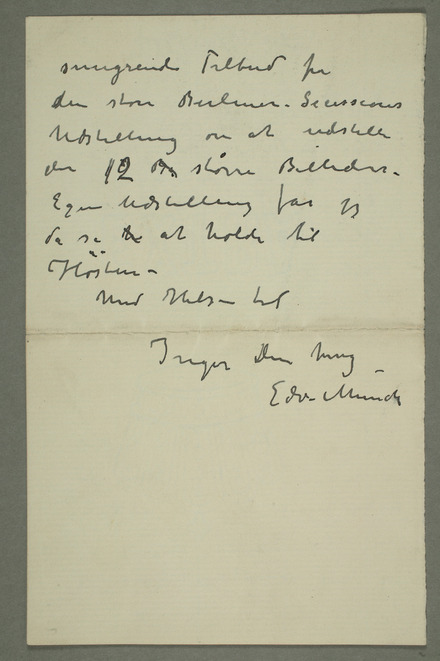 smigrende Tilbud fra
den store Berliner-Secessions
Udstilling om at udstille
der 12 større Billeder.
Egen Udstilling får jeg
da se at holde til
Hösten –
Med Hilsen til
Inger Din hengiv
Edv. Munch